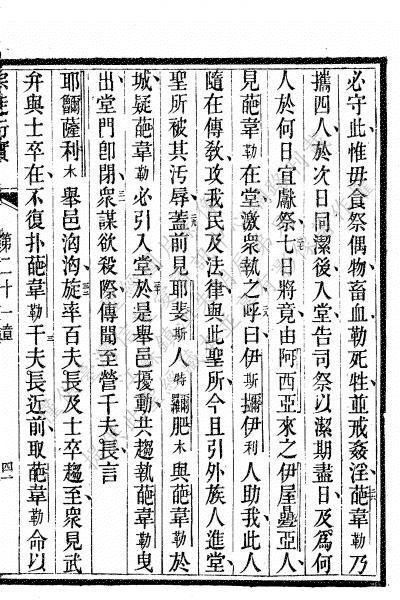 必守此惟毋食祭偶物畜血勒死牲並戒姦淫葩韋勒乃
攜四人於次日同潔後入堂告司祭以潔期盡日及爲何
人於何日宜獻祭七日將竟由阿西亞來之伊屋疊亞人
見葩韋勒在堂激衆執之呼曰伊斯伊利人助我此人
隨在傳敎攻我民及法律與此聖所今且引外族人進堂
聖所被其汚辱蓋前見耶斐斯人特肥木與葩韋勒於
城疑葩韋勒必引入堂於是舉邑擾動共趨執葩韋勒曳
出堂門卽閉衆謀欲殺際傳聞至營千夫長言
耶薩利木舉邑洶洶旋率百夫長及士卒趨至衆見武
弁與士卒在不復扑葩韋勒千夫長近前取葩韋勒命以
第二十一章